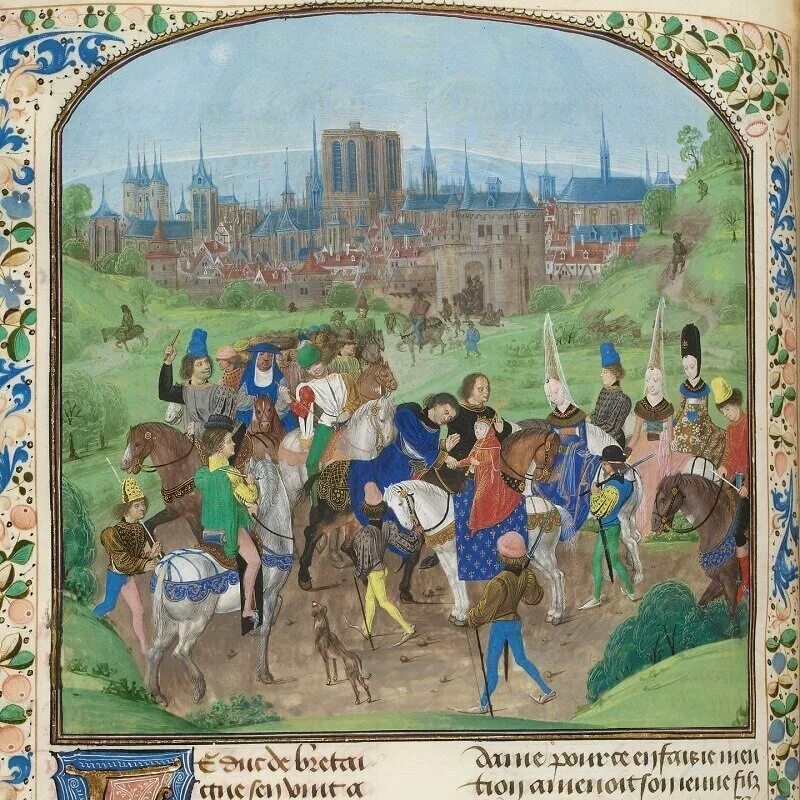 Le duc de bretai
gne sen vint a
dame pour ce en faisie men
tion amenoit son ieune filz